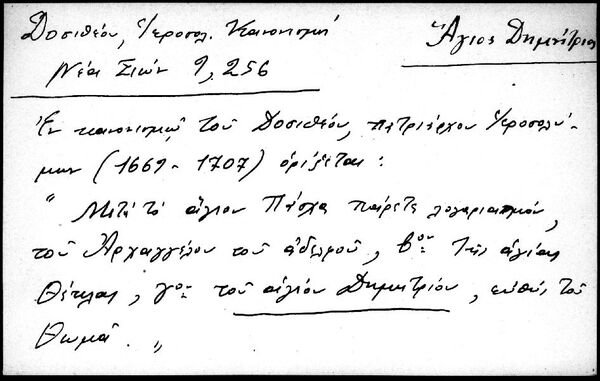 Δοσιθέου, Ἱεροσολ. Κανονισμοί
Νέα Σιών 9, 256
Ἅγιος Δημήτριος
Ἐν κανονισμῷ τοῦ Δοσιθέου, πατριάρχου Ἱεροσολύ-
μων (1669 - 1707) ὁρίζεται :
" Μετὰ τὸ ἅγιον Πάσχα παίρετε λογαριασμόν,
τοῦ Ἀρχαγγέλου τοῦ ἀδελφοῦ, βον τῆς ἁγίας
Θέκλας, γον τοῦ ἁγίου Δημητρίου, εὐθὺς τοῦ
Θωμᾶ. "